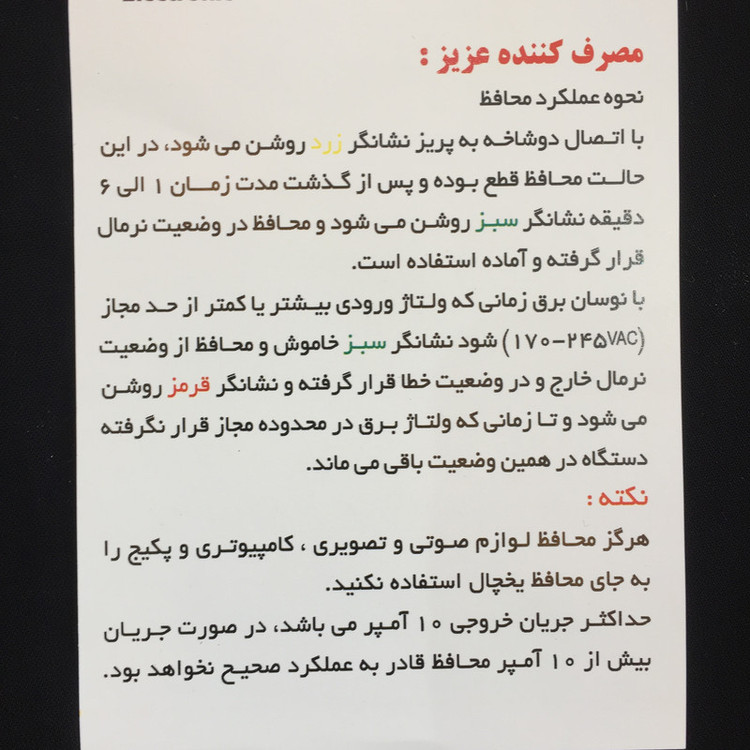 مصرف کننده عزیز :
نحوه عملکرد محافظ
با اتصال دوشاخه به پریز نشانگر زرد روشن می شود، در این
حالت محافظ قطع بوده و پس از گذشت مدت زمان ۱ الی ۶
دقیقه نشانگر سبز روشن می شود و محافظ در وضعیت نرمال
قرار گرفته و آماده استفاده است.
با نوسان برق زمانی که ولتاژ ورودی بیشتر یا کمتر از حد مجاز
(۱۷۰-۲۴۵VAC) شود نشانگر سبز خاموش و محافظ از وضعیت
نرمال خارج و در وضعیت خطا قرار گرفته و نشانگر قرمز روشن
می شود و تا زمانی که ولتاژ برق در محدوده مجاز قرار نگرفته
دستگاه در همین وضعیت باقی می ماند.
نکته :
هرگز محافظ لوازم صوتی و تصویری ، کامپیوتری و پکیج را
به جای محافظ یخچال استفاده نکنید.
حداکثر جریان خروجی ۱۰ آمپر می باشد، در صورت جریان
بیش از ۱۰ آمپر محافظ قادر به عملکرد صحیح نخواهد بود.